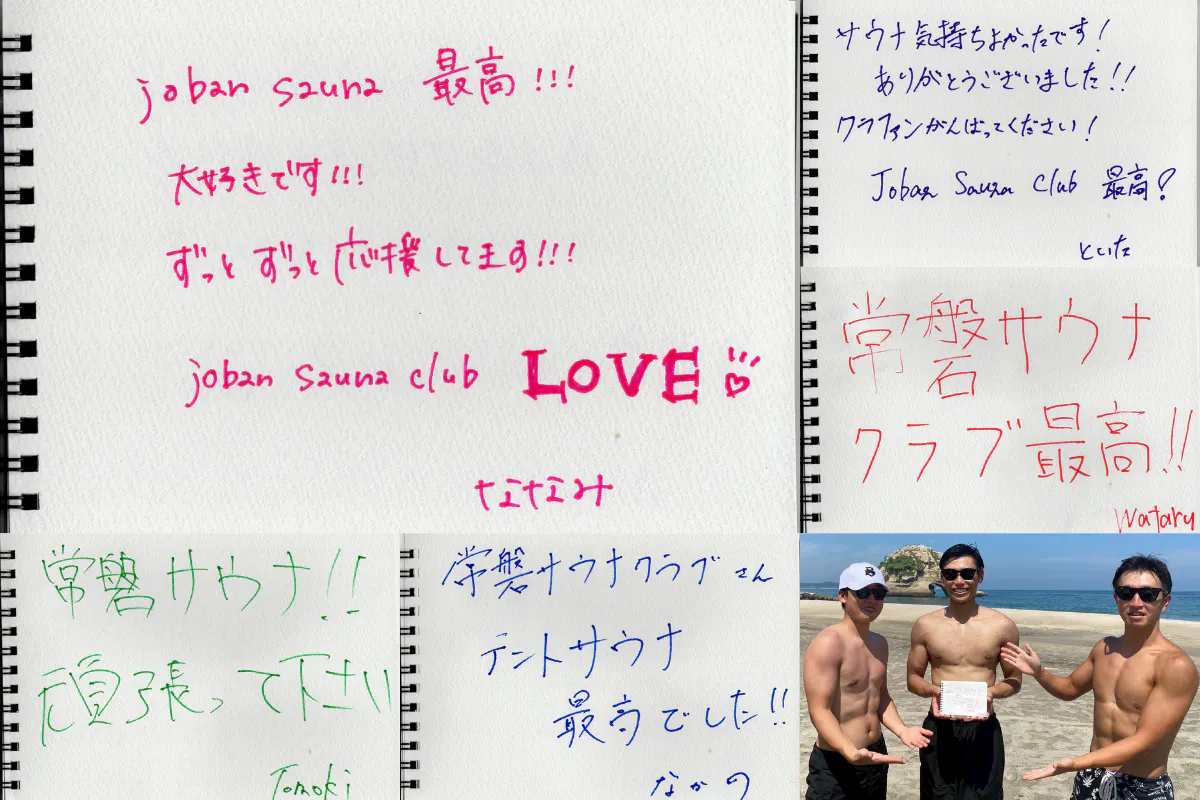 joban sauna 最高!!!
大好きです!!!
ずっと ずっと 応援してます!!!
joban sauna club LOVE
ななみ
サウナ気持ちよかったです!
ありがとうございました!!
クラファンがんばってください!
Joban Sauna Club 最高!
といた
常磐サウナ
クラブ最高!!
Wataru
常磐サウナ!!
頑張って下さい
Tomoki
常磐サウナクラブさん
テントサウナ
最高でした!!
なかの